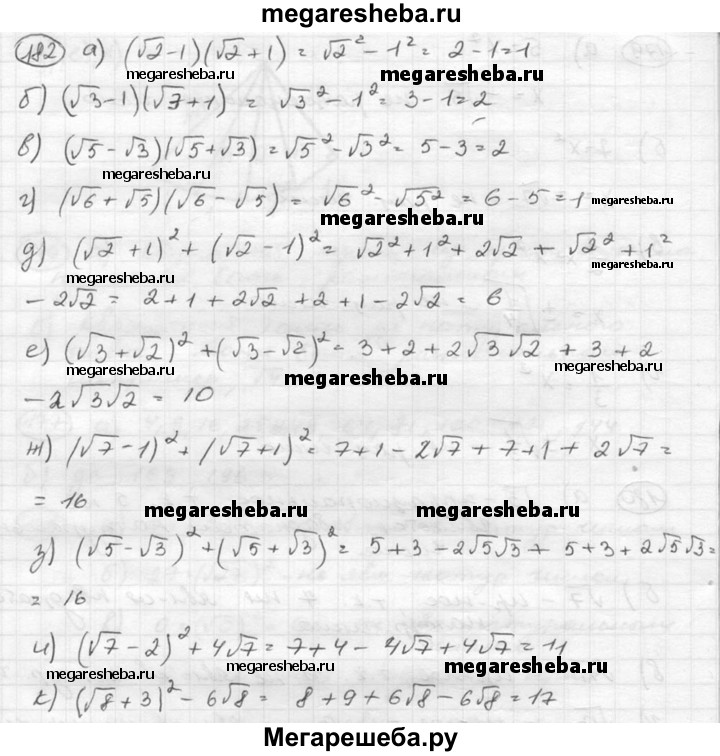 megaresheba.ru
182 а) (√2-1)(√2+1) = √2² - 1² = 2-1=1
megaresheba.ru megaresheba.ru
б) (√3-1)(√7+1) = √3² - 1² = 3-1=2
в) (√5-√3)(√5+√3) = √5² - √3² = 5-3=2
megaresheba.ru
г) (√6+√5)(√6-√5) = √6² - √5² = 6-5=1 megaresheba.ru
megaresheba.ru
д) (√2+1)² + (√2-1)² = √2²+1²+2√2 + √2²+1²
megaresheba.ru megaresheba.ru
-2√2 = 2+1+2√2+2+1-2√2 = 6
е) (√3+√2)² + (√3-√2)² = 3+2+2√3√2 + 3+2
megaresheba.ru megaresheba.ru
-2√3√2 = 10
ж) (√7-1)² + (√7+1)² = 7+1-2√7+7+1+2√7 =
= 16 megaresheba.ru megaresheba.ru
з) (√5-√3)² + (√5+√3)² = 5+3-2√5√3 + 5+3+2√5√3 =
= 16
и) (√7-2)² + 4√7 = 7+4-4√7+4√7 = 11
megaresheba.ru megaresheba.ru megaresheba.ru
к) (√8+3)² - 6√8 = 8+9+6√8-6√8 = 17
Мегарешеба.ру